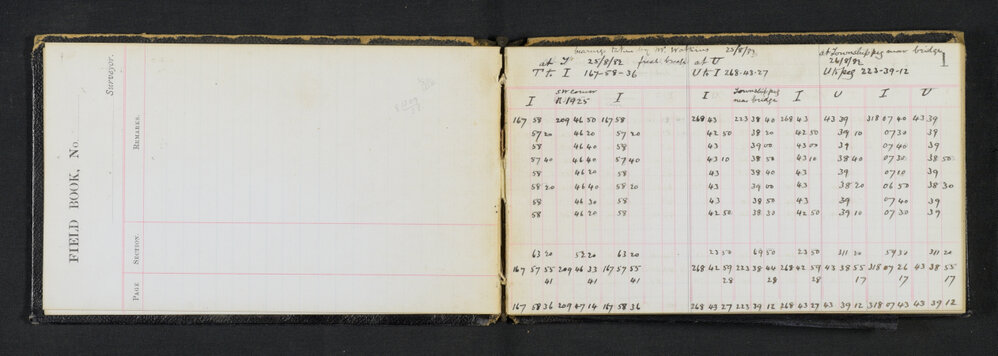 FIELD BOOK, No.
Surveyor.
PAGE SECTION. REMARKS.
bearings taken by Mr Watkins 25/8/82
at T 25/8/82 at U at Township peg near bridge 1
26/8/82
T to I 167-58-36 U to I 268-43-27 U to peg 223-39-12
I SW corner R.1925 I I Township peg near bridge I U I U
167 58 209 46 50 167 58 268 43 223 38 40 268 43 43 39 318 07 40 43 39
57 20 46 20 57 20 42 50 38 20 42 50 39 10 07 30 39
58 46 40 58 43 39 00 43 00 39 07 40 39
57 40 46 40 57 40 43 10 38 50 43 10 38 40 07 30 38 50
58 46 20 58 43 38 40 43 39 07 10 39
58 20 46 40 58 20 43 39 00 43 38 20 06 50 38 30
58 46 30 58 43 38 50 43 39 07 40 39
58 46 20 58 42 50 38 30 42 50 39 10 07 30 39
63 20 52 20 63 20 23 50 69 50 23 50 311 20 59 30 311 20
167 57 55 209 46 33 167 57 55 268 42 59 223 38 44 268 42 59 43 38 55 318 07 26 43 38 55
41 41 41 28 28 28 17 17 17
167 58 36 209 47 14 167 58 36 268 43 27 223 39 12 268 43 27 43 39 12 318 07 43 43 39 12